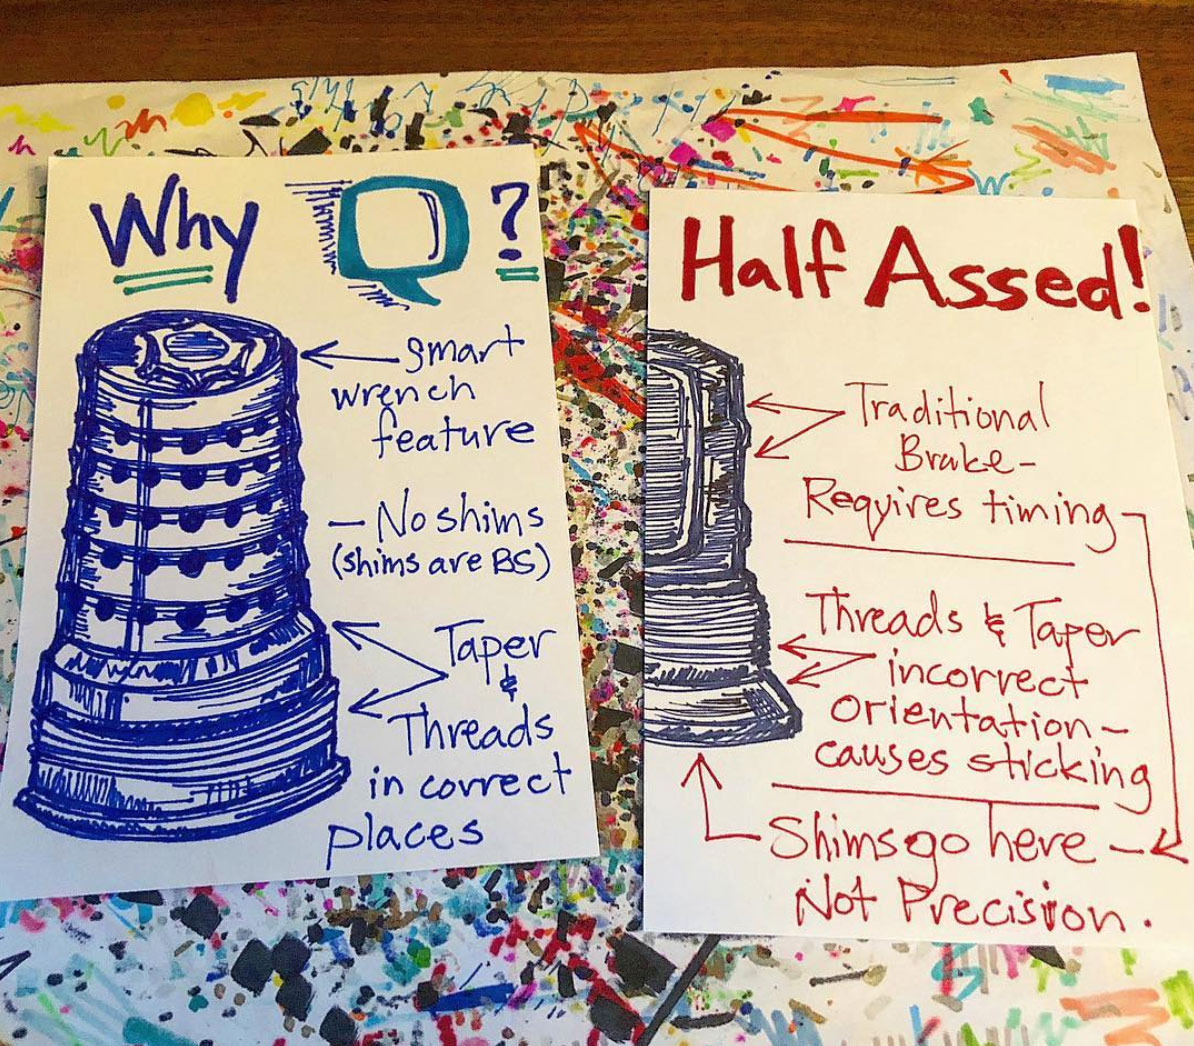 Why Q ?
smart
wrench
feature
— No shims
(shims are BS)
Taper
&
Threads
in correct
places
Half Assed!
Traditional
Brake-
Requires timing
Threads & Taper
incorrect
Orientation-
causes sticking
Shims go here
Not Precision.